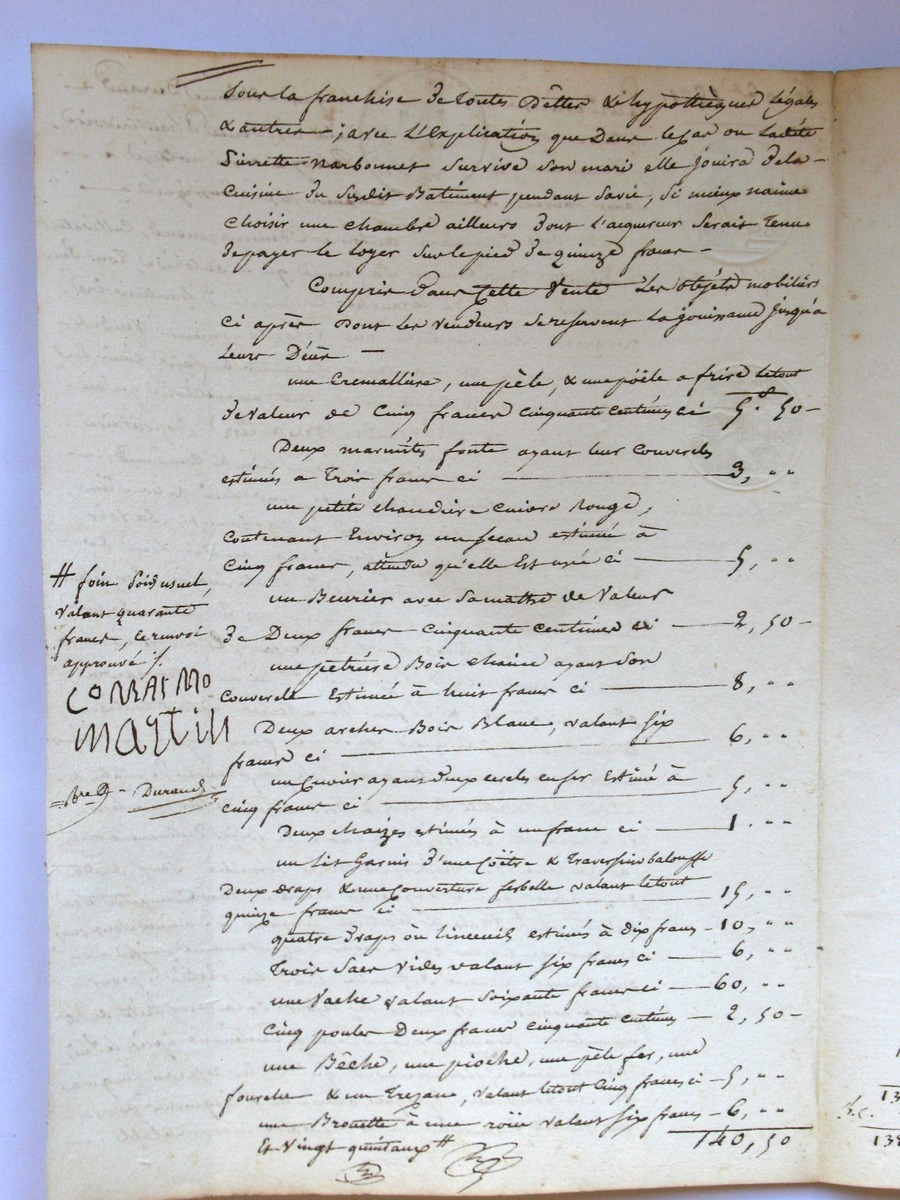 sous la franchise de toutes dettes & hypothèques légales
& autres ; avec l'Explication que dans le cas ou ladite
Pierrette narbonnet survive son mari elle jouira de la
Cuisine du susdit Batiment pendant savie, si mieux naime
choisir une chambre ailleurs dont l'acquereur serait tenu
depayer le loyer surlepied de quinze francs -
Compris dans Cette Vente les objets mobiliers
ci après dont les vendeurs sereservent la jouissance jusqu'a
leurs Décès —
une Cremallière, une pèle, & une poële a frire letout
de valeur de Cinq francs cinquante centimes ci 5f. 50 -
Deux marmites fonte ayant leur couvercles
estimés a trois francs ci — 3, " "
une petite chaudière cuivre rouge,
contenant Environ un seau estimé à
Cinq francs, attendu qu'elle Est usée ci — 5, " "
un Beurier avec de Valeur
de Deux francs cinquante centimes ci — 2, 50 -
une petrière Bois chaine ayant son
couvercle Estimée à huit francs ci — 8, " "
Deux arches Bois Blanc, valant six
francs ci — 6, " "
un Cuvier ayant deux cercles en fer Estimé à
cinq francs ci — 5, " "
Deux chaizes estimées à unfranc ci — 1 . " "
un lit Garnis d'une Coëtre & traversin balouffe
Deux draps & une couverture valant letout
quinze francs ci — 15, " "
quatre draps ou linceuil estimés à dix francs - 10, " "
trois sacs vides valant six francs ci — 6, " "
une Vache valant soixante francs ci — 60, " "
Cinq poules Deux francs cinquante centimes — 2, 50 -
une Bêche, une pioche, une pèle fer, une
fourche & un valant letout cinq francs ci - 5, " "
une Brouette à une roüe valant six francs - 6, " "
Et Vingt quintaux # 140, 50
# foin Poid usuel,
valant quarante
francs, le renvoi
approuvé /.
martin
Durand